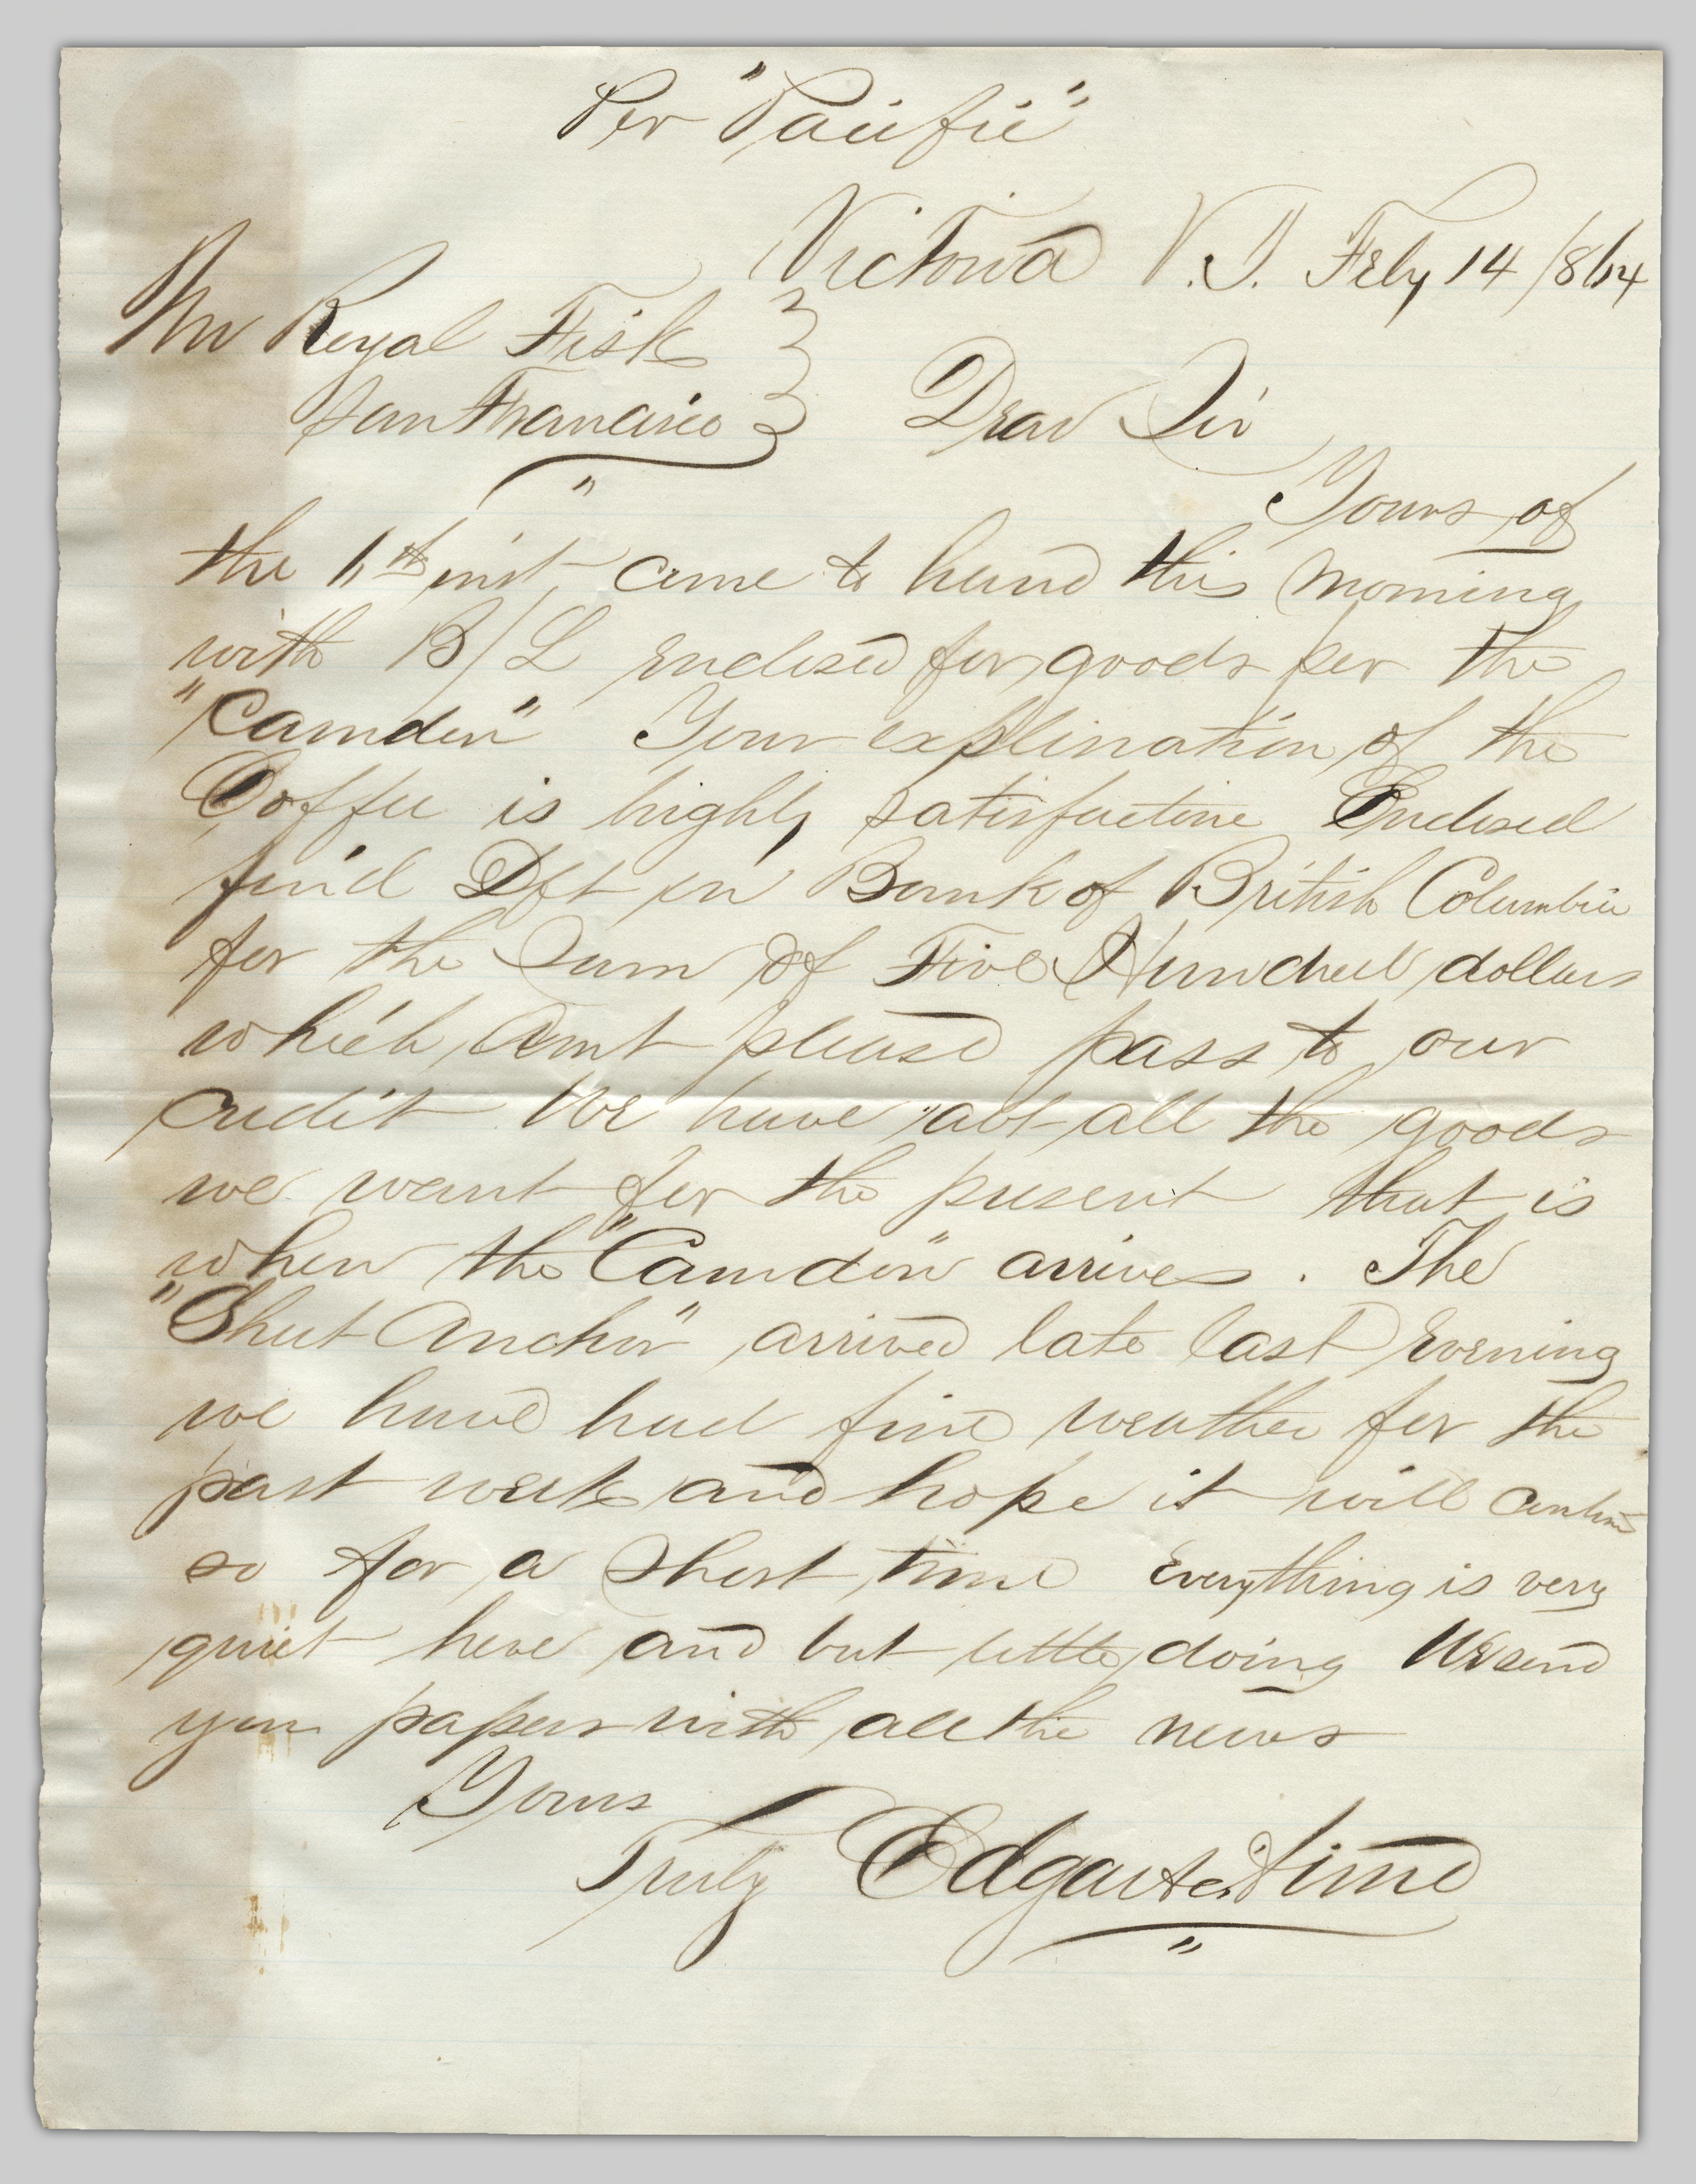 Per "Pacific"
Victoria V.I. Feby 14 /864
Mr Royal Fisk
San Francisco
Dear Sir
Yours of
the inst came to hand this morning
with B/L enclosed for goods per the
"Camden" Your explination of the
Coffee is highly Enclosed
find Dft on Bank of British Columbia
for the Sum of Five Hundred dollars
which Amt please pass to our
credit We have all the goods
we want for the present that is
when the "Camden" arrives. The
"Sheet Anchor" arrived late last Evening
we have had fine weather for the
past week and hope it will
so for a Short time Everything is very
quiet here and but little doing We send
you papers with all the news
Yours
Truly Edgar